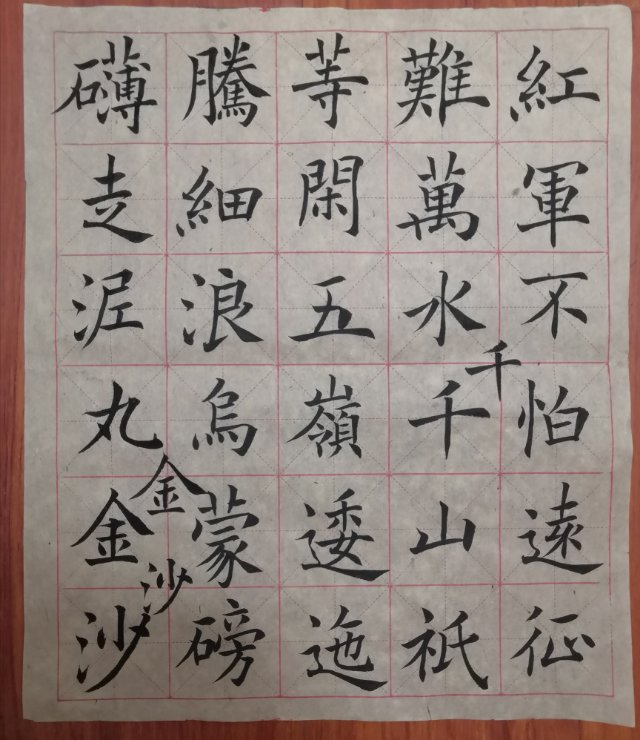 紅軍不怕遠征
難萬水千千山祇
等閑五嶺逶迤
騰細浪烏蒙磅
礴走泥丸金金沙沙